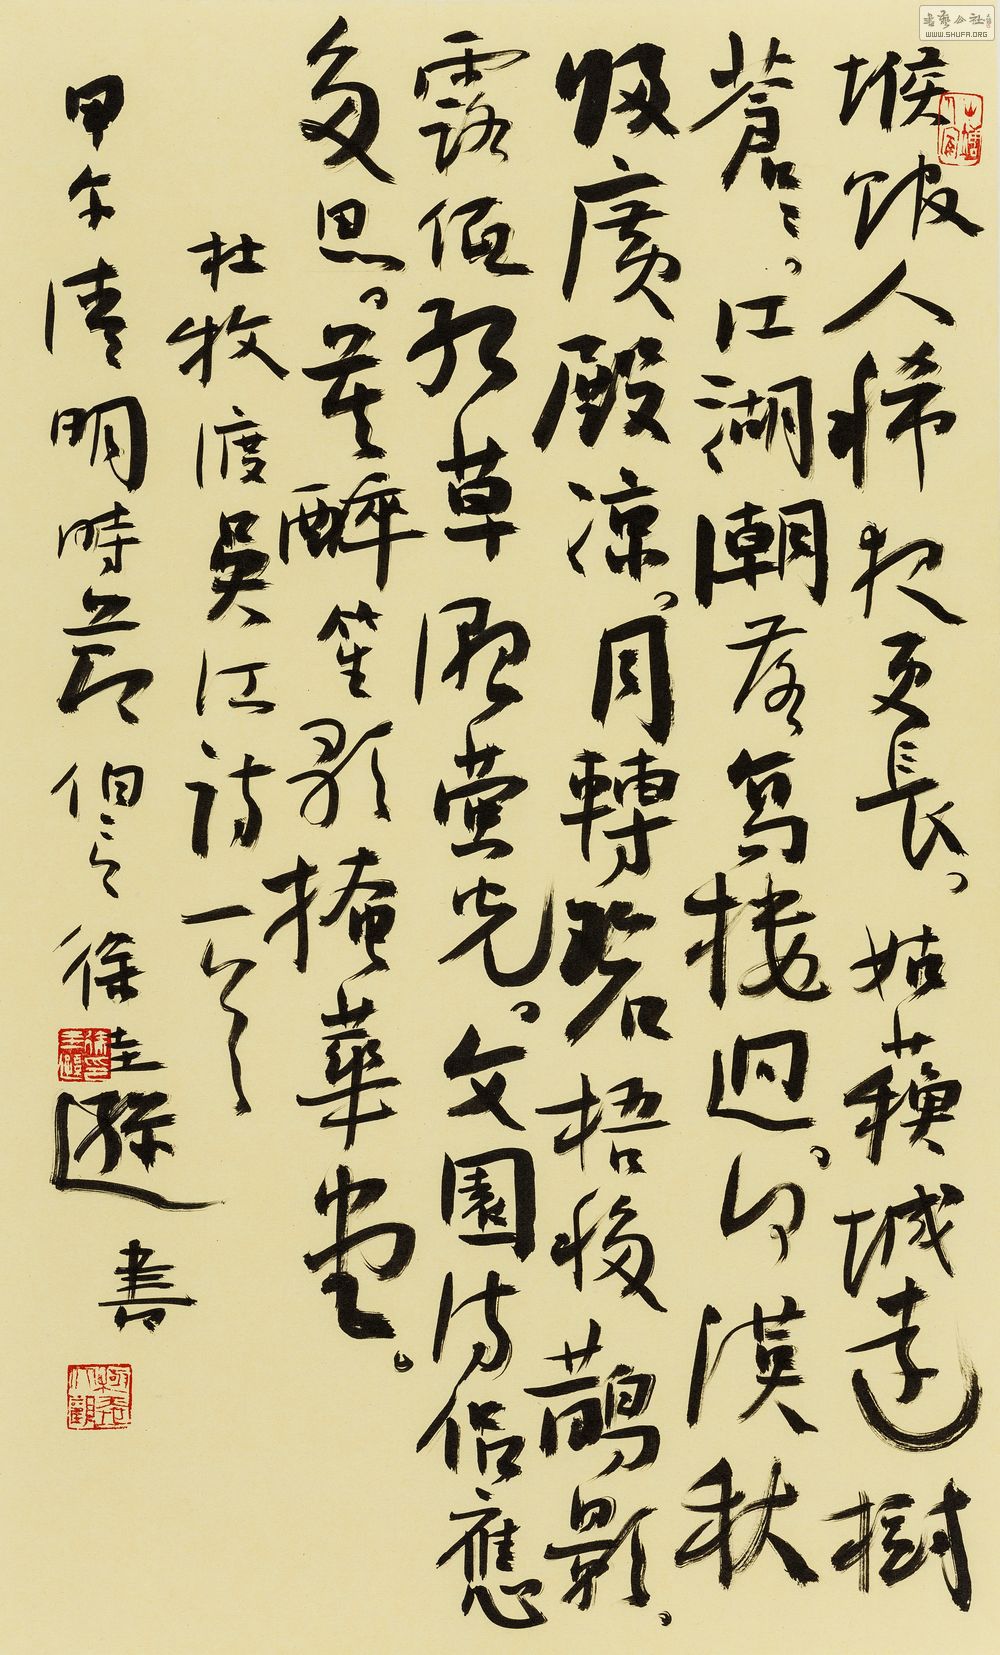 堠馆人稀夜更長。姑蘇城遠樹
蒼〻。江湖潮落高樓迥。河漢秋
歸廣殿凉。月轉碧梧移鵲影。
露低红草濕螢光。文園诗侣應
多思。莫醉笙歌掩華堂。
杜牧渡吴江诗一首
甲午清明時節 徐圭遜書
書藝公社
WWW.SHUFA.ORG